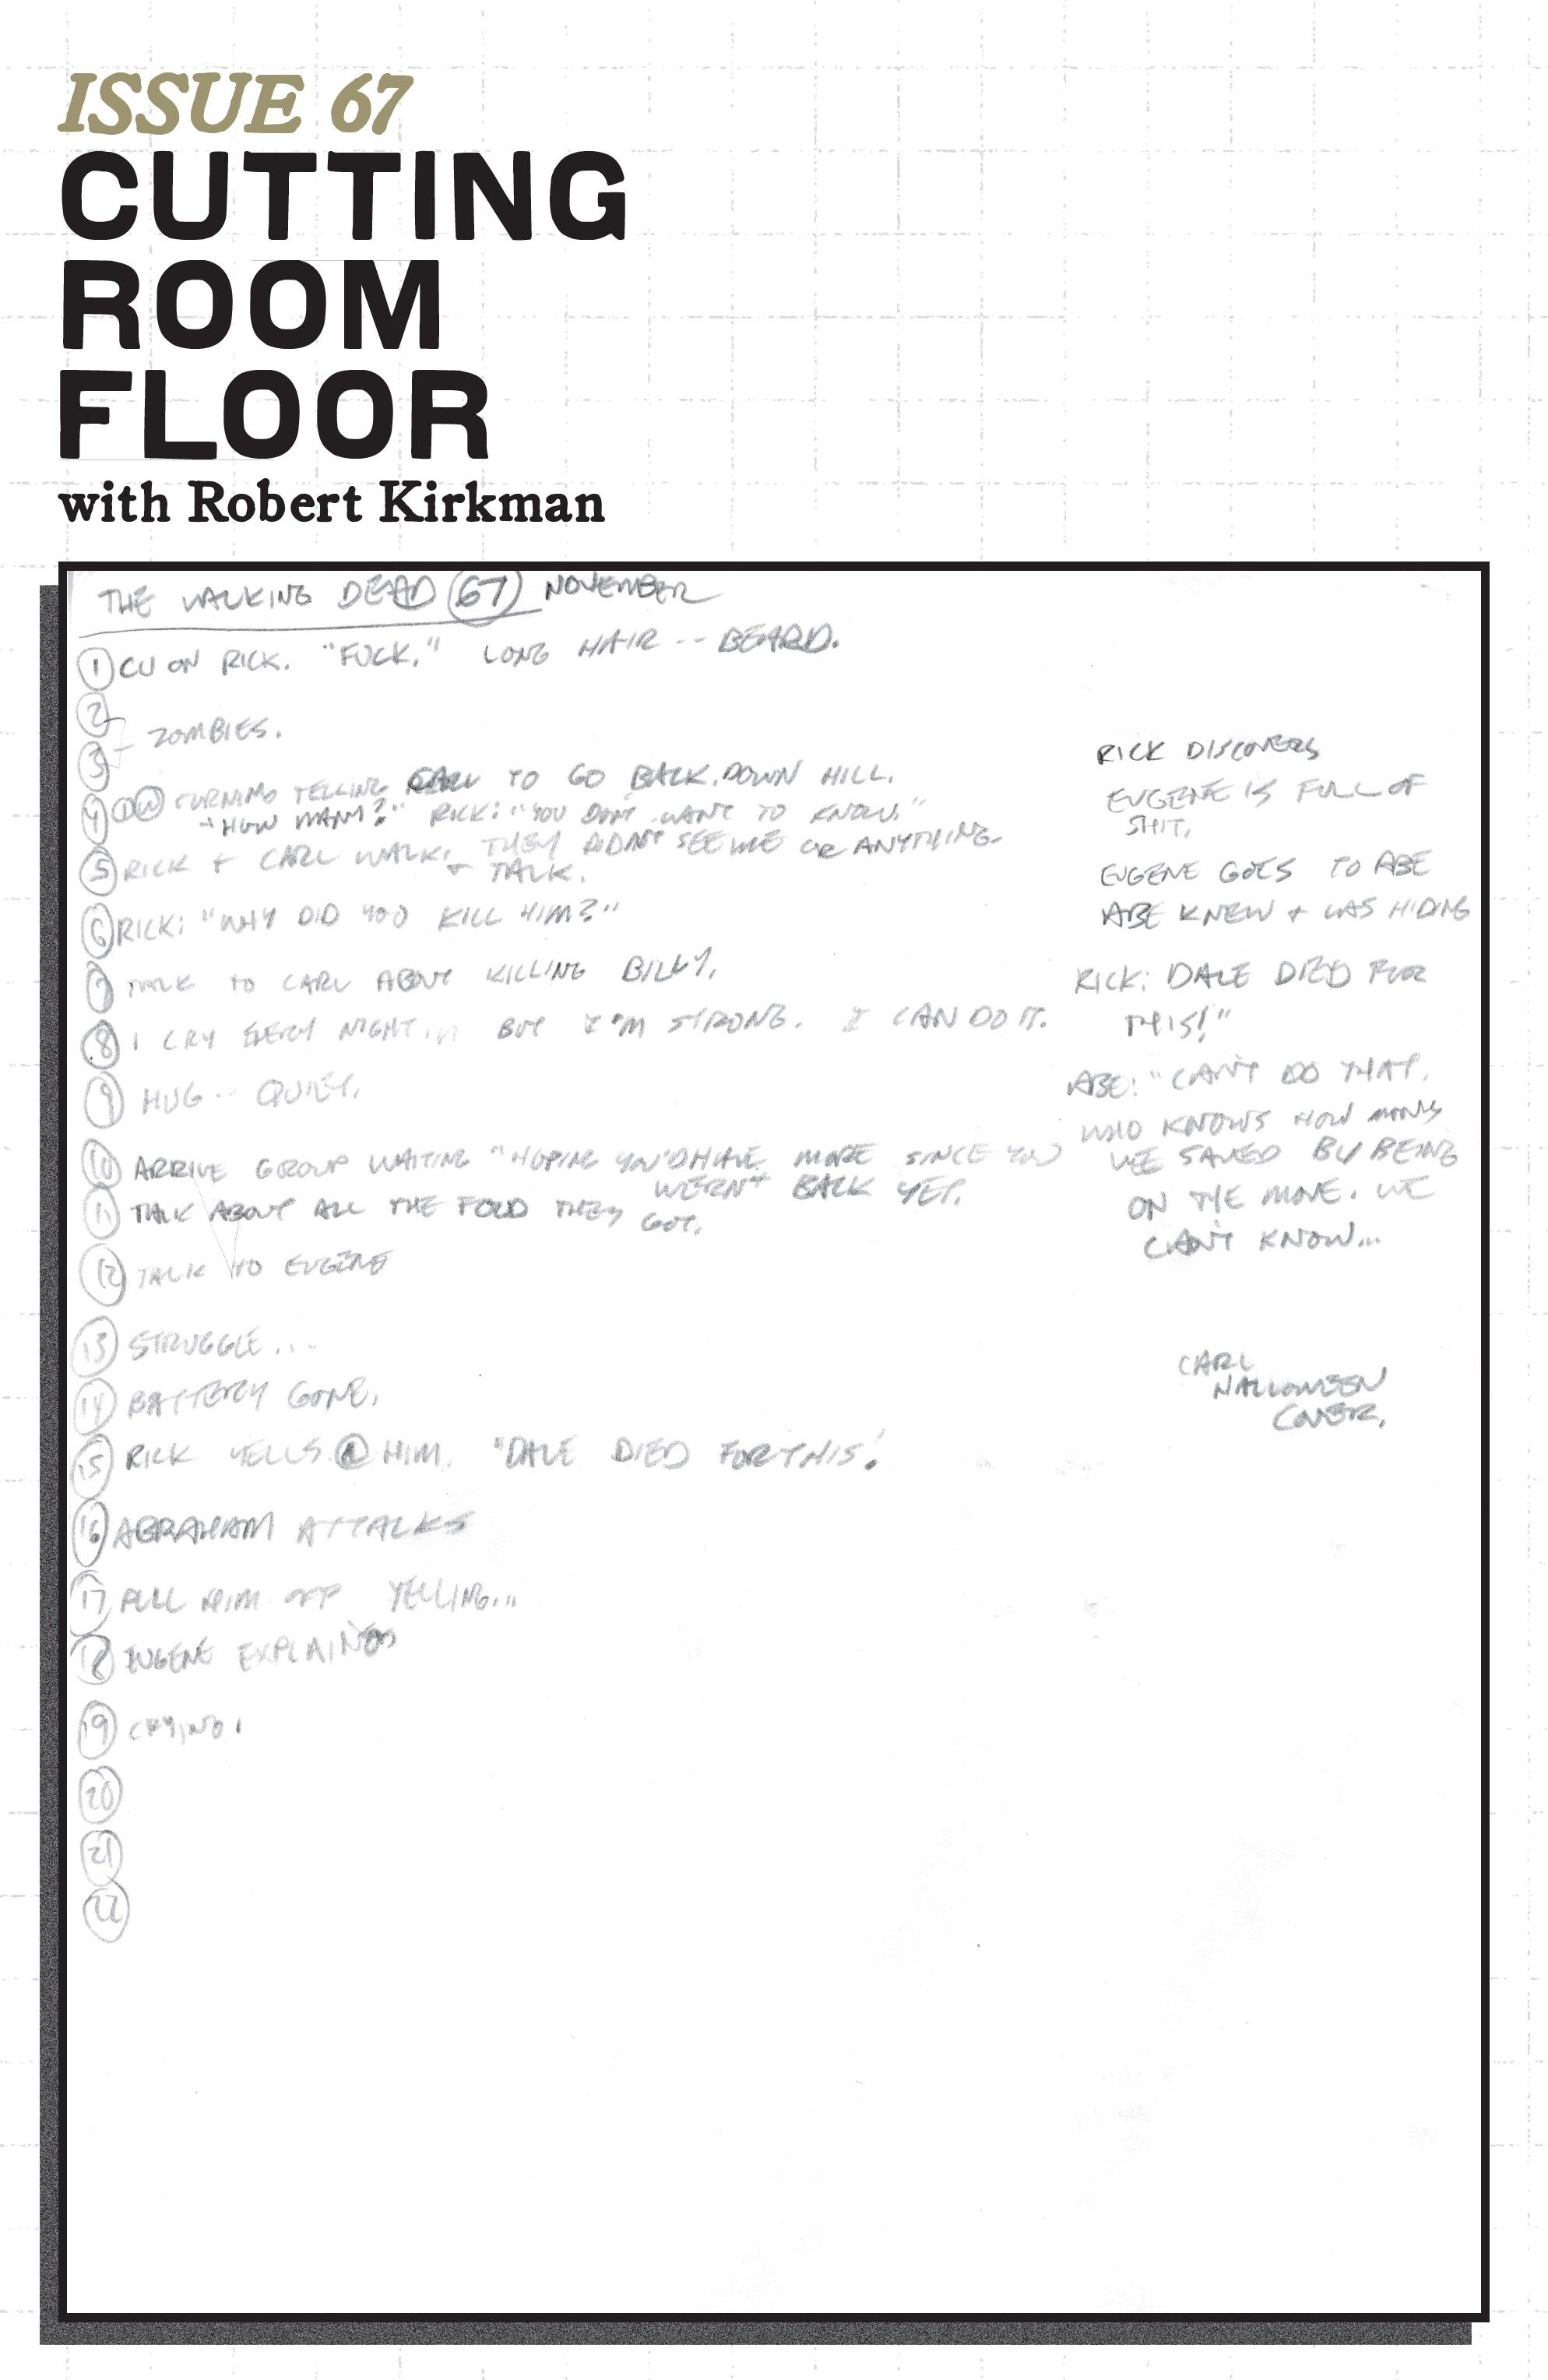 ISSUE 67
CUTTING
ROOM
FLOOR
with Robert Kirkman
THE WALKING DEAD 67 NOVEMBER
1 CU ON RICK. "FUCK." LONG HAIR -- BEARD.
2
3 - ZOMBIES.
4 TURNING TELLING CARL TO GO BACK. DOWN HILL.
"HOW MANY?" RICK: "YOU DON'T WANT TO KNOW."
5 RICK + CARL WALK. THEY DIDN'T SEE ME OR ANYTHING.
+ TALK.
6 RICK: "WHY DID YOU KILL HIM?"
7 TALK TO CARL ABOUT KILLING BILLY.
8 I CRY EVERY NIGHT... BUT I'M STRONG. I CAN DO IT.
9 HUG -- QUIET.
10 ARRIVE GROUP WAITING "HOPING YOU'D HAVE MORE SINCE YOU
WERN'T BACK YET.
11 TALK ABOUT ALL THE FOOD THEY GOT.
12 TALK TO EUGENE
13 STRUGGLE...
14 BATTERY GONE.
15 RICK YELLS @ HIM. "DALE DIED FOR THIS!
16 ABRAHAM ATTACKS
17 PULL HIM OFF YELLING...
18 EUGENE EXPLAINS
19 CRYING.
20
21
22
RICK DISCOVERS
EUGENE IS FULL OF
SHIT.
EUGENE GOES TO ABE
ABE KNEW + WAS HIDING
RICK: DALE DIED FOR
THIS!"
ABE: "CAN'T DO THAT.
WHO KNOWS HOW MANY
WE SAVED BY BEING
ON THE MOVE. WE
CAN'T KNOW...
CARL
HALLOWEEN
COVER.